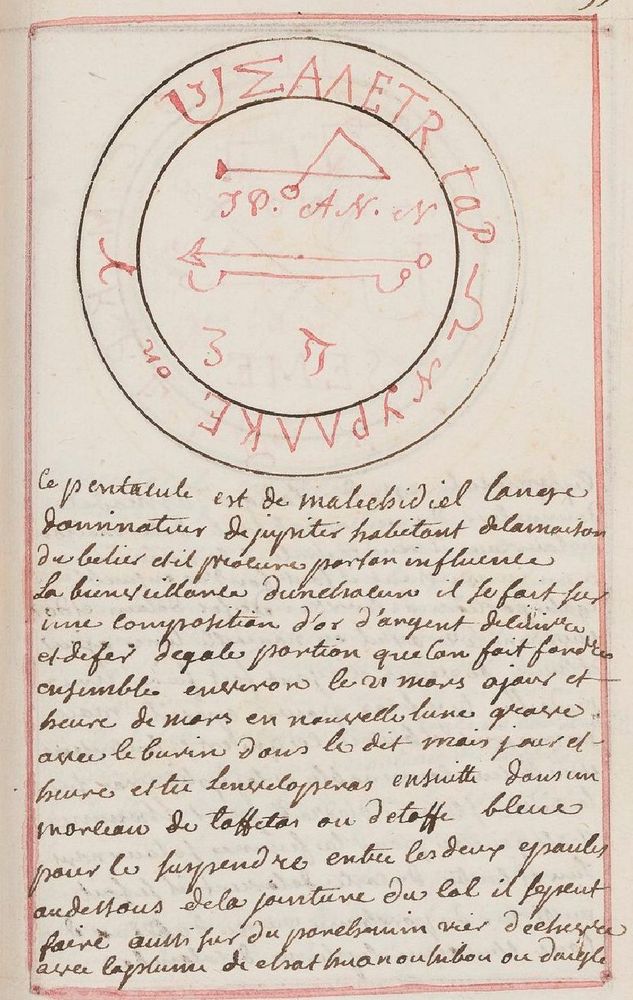 ΣΑΛΕΤR
taρ
JP. AN. N
3
ΥΡΛΛΚΕ
Ce pentacule est de malchidiel langre
dominateur de jupiter habitant de la maison
du belier et il procure par son influence
La bienveillance dun chacun il se fait sur
une composition d'or d'argent de cuivre
et de fer degale portion que lon fait fondre
ensemble environ le 21 mars a jour et
heure de mars en nouvelle lune grave
avec le burin dans le dit mois jour et
heure et tu lenveloperas ensuitte dans un
morceau de taffetas ou detoffe bleue
pour le suspendre entre les deux epaules
au dessous de la jointure du col il se peut
faire aussi sur du parchemin vier de chevre
avec la plume de chat huan ou hibou ou daigle